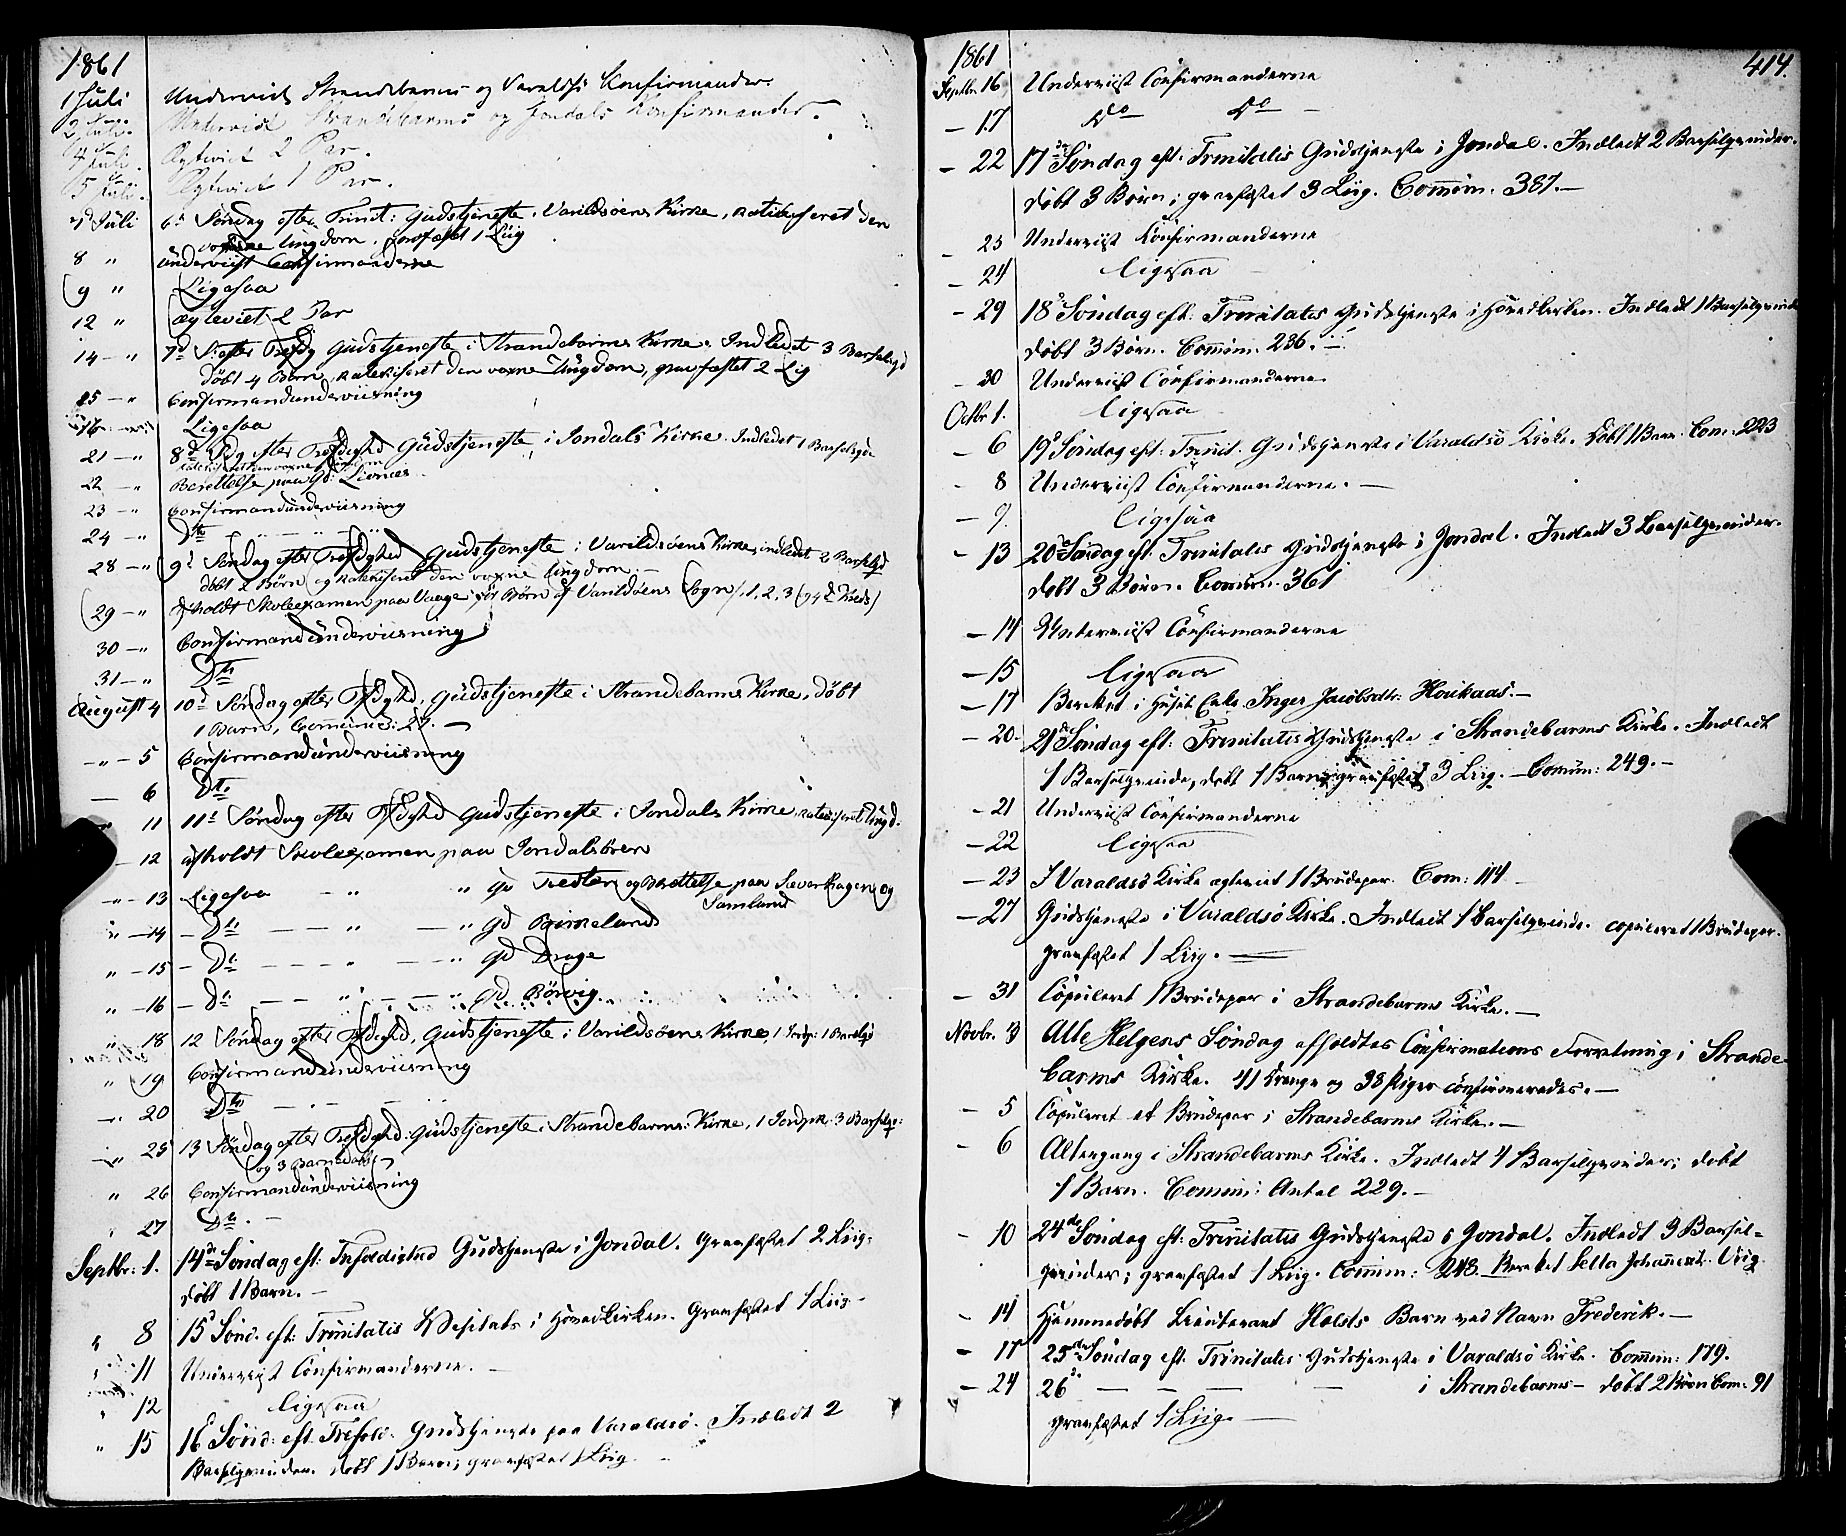 1861
1 Juli Underviist Strandebarms og Varaldsö Konfirmander.
2 Juli. Underviist Strandebarms og Jondals Konfirmander.
4 Juli. Ægteviet 2 Par.
5 Juli. Ægteviet 1 Par.
7d Juli 6d Søndag efter Trinit: Gudstjeneste i Varildsöens Kirke, katekiseret den
voxne Ungdom, jordfæstet 1 Liig
8 " underviist Confirmanderne
9 " Ligesaa
12 " ægteviet 2 Par
14 - " 7d S: efter Gudstjeneste i Strandebarms Kirke. Indledet 3 Barselqd
döbt 4 Börn, katekiseret den voxne Ungdom, graufæstet 2 Lig
15 - " Confirmandunderviisning
16 Ligesaa
21 - " 8d Sdg efter Gudstjeneste i Jondals Kirke. Indledet 1 Barselqv
22 - " Berettelse paa Gd:
23 - " Confirmandunderviisning
24 - " Dto
28 - " 9d Søndag efter Gudstjeneste i Varildsöens Kirke, indledet 2 Barselqd
döbt 2 Börn og katekiseret den voxne Ungdom. -
29 - " afholdt Skoleexamen paa Vaage för Börn af Varildsöens Sogn /: 1, 2, 3 og 4d Kreds/
30 - " Confirmandunderviisning
31 - " Dto
August 4 10d Søndag efter Gudstjeneste i Strandebarms Kirke, döbt
1 Barn, Communic: 27. -
- " - 5 Confirmandunderviisning
- 6 Dto
11 11d Søndag efter Gudstjeneste i Jondals Kirke, katekiseret Ungd.
- 12 afholdt Skoleexamen paa Jondalsören
- " - 13 Ligesaa - " " Gd og Berettelse paa og
Samland
" - 14 - Do - - " - " Gd Birkeland
" - 15 - Do - - " - " Gd Drage
" - 16 - Do - - " - " Gd Börvig.
" 18 12 Søndag efter Gudstjeneste i Varildsöens Kirke, 1 1 Barselqd
" 19 Confirmandunderviisning
- 20 Dto
- " 25 13 Søndag efter Gudstjeneste i Strandebarms Kirke, 1 3 Barselqv:
og 3 Barnedaab
" 26 Confirmandunderviisning
" 27 Do. -
Septbr: 1. 14de Søndag eft: Trefoldighed Gudstjeneste i Jondal. Graufæstet 2 Liig.
döbt 1 Barn. -
" 8 15d Sönd. eft: Trinitatis Visitats i Hovedkirken. Graufæstet 1 Liig -
" 11 Underviist Confirmanderne. -
" 12 Ligesaa
" 15 16d Sönd: eft. Trefold: Gudstjeneste paa Varaldsö. Indledt 2
Barselqvinder. döbt 1 Barn; graufæstet 1 Liig.
1861 414.
Septbr. 16 Underviist Confirmanderne
- 17 Do Do -
- 22 17de Søndag eft: Trinitatis Gudstjeneste i Jondal. Indledt 2 Barselqvinder.
döbt 3 Börn; graufæstet 3 Liig. Comm̄n. 387. -
23 Underviist Konfirmanderne
- 24 Ligesaa -
- 29 18d Søndag eft: Trinitatis Gudstjeneste i Hovedkirken. Indledt 1 Barselqvinde
döbt 3 Börn. Commun: 236. -
- 30 Underviist Confirmanderne.
Octbr 1. Ligesaa
- 6 19d Søndag eft: Trinit. Gudstjeneste i Varaldsö Kirke. Döbt 1 Barn. Com: 223
- 8 Underviist Confirmanderne. -
- 9. Ligesaa
- 13 20de Søndag eft. Trinitatis Gudstjeneste i Jondal. Indledt 3 Barselqvinder.
döbt 3 Börn. Commun. 361
- 14 Underviist Confirmanderne
- 15 Ligesaa
- 17 Berettet i Huset Enke Inger Jacobsdtr. Houkaas. -
- 20 21de Søndag eft: Trinitatis Gudstjeneste i Strandebarms Kirke. Indledt
1 Barselqvinde, döbt 1 Barn, graufæstet 3 Liig. - Commun: 249. -
- 21 Underviist Confirmanderne
- 22 Ligesaa
- 23 I Varaldsö Kirke ægteviet 1 Brudepar. Com: 114 -
- 27 Gudstjeneste i Varaldsö Kirke. Indledt 1 Barselqvinde. copuleret 1 Brudepar.
graufæstet 1 Liig. -
- 31 Copuleret 1 Brudepar i Strandebarms Kirke. -
Novbr. 3 Alle Helgens Søndag afholdtes Confirmations Forretning i Strande-
barms Kirke. 41 Drenge og 38 Piger confirmeredes. -
- 5 Copuleret et Brudepar i Strandebarms Kirke. -
- 6 Altergang i Strandebarms Kirke. Indledt 4 Barselqvinder; döbt
1 Barn. Commun: Antal 229. -
- 10 24de Søndag eft: Trinitatis Gudstjeneste i Jondal. Indledt 3 Barsel-
qvinder; graufæstet 1 Liig. Commun: 248. Berettet Sella Johannesdtr.
- 14 Hjemmedöbt Lieutenant Holsts Barn ved Navn Frederik. -
- 17 25de Søndag eft. Trinitatis Gudstjeneste i Varaldsö Kirke. Commun: 179.
- 24 26d - - - - i Strandebarms - döbt 2 Börn Com: 91
graufæstet 1 Liig. -